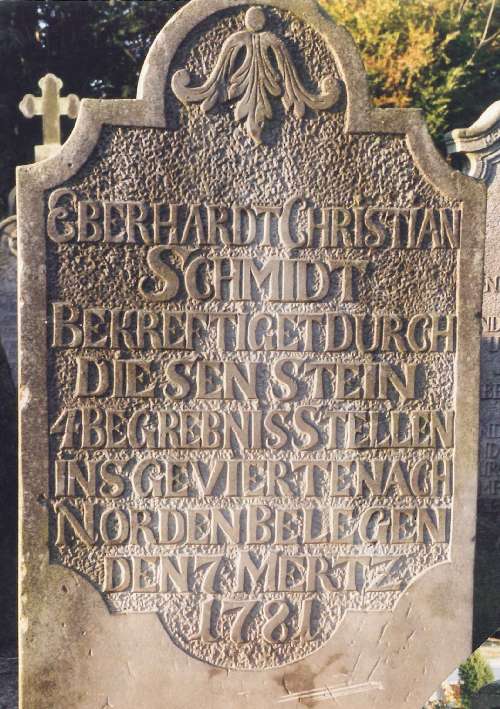 EBERHARDT CHRISTIAN
SCHMIDT
BEKREFTIGET DURCH
DIESEN STEIN
4 BEGREBNISS STELLEN
INS GEVIERTE NACH
NORDEN BELEGEN
DEN 7 MERTZ
1781